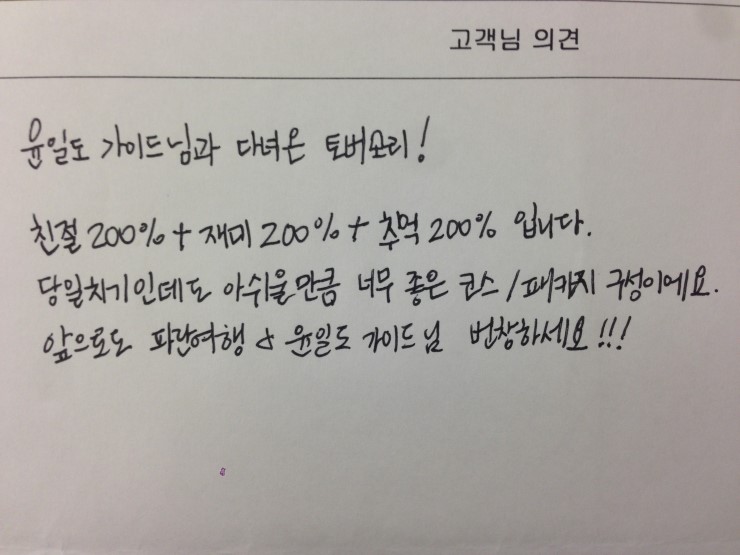 고객님 의견
윤일도 가이드님과 다녀온 토버소리!
친절 200% + 재미 200% + 추억 200% 입니다.
당일치기인데도 아쉬울만큼 너무 좋은 코스/패캐지 구성이에요.
앞으로도 파란여행 & 윤일도 가이드님 번창하세요!!!